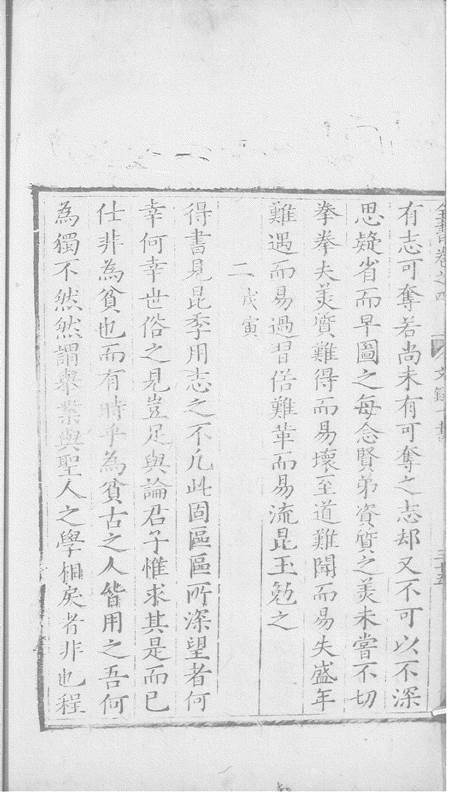 全書卷之四 文錄一書 三十五
有志可奪若尚未有可奪之志却又不可以不深
思疑省而早圖之每念賢弟資質之美未嘗不切
拳拳夫美質難得而易壞至道難聞而易失盛年
難遇而易過習俗難革而易流昆玉勉之
二戊寅
得書見昆季用志之不凡此固區區所深望者何
幸何幸世俗之見豈足與論君子惟求其是而已
仕非為貧也而有時乎為貧古之人皆用之吾何
為獨不然然謂舉業與聖人之學相戾者非也程